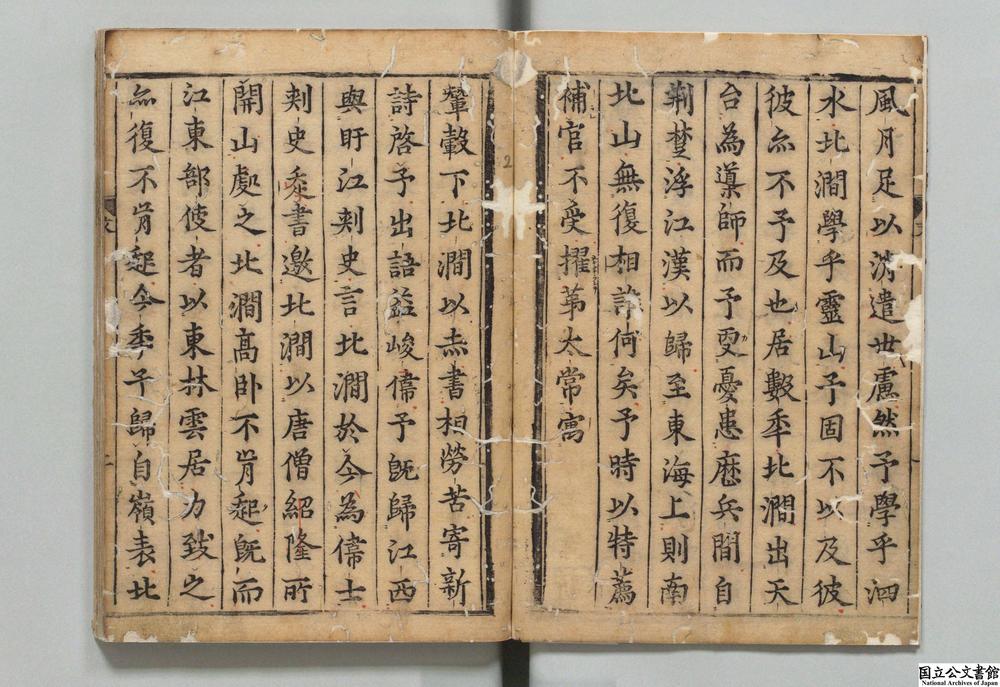 風月足以消遣世慮然予學乎泗
水北澗學乎靈山予固不以及彼
彼亦不予及也居數秊北澗出天
台為導師而予更憂患歷兵間自
荆楚浮江漢以歸至東海上則南
北山無復相許何矣予時以特薦
補官不受擢第太常寓
輦轂下北澗以赤書相勞苦寄新
詩啓予出語益峻偉予既歸江西
與盱江刾史言北澗於今為偉士
刾史書邀北澗以唐僧紹隆所
開山處之北澗高卧不肯起既而
江東部使者以東林雲居力致之
亦復不肯起今秊予歸自嶺表北
2
国立公文書館
National Archives of Japan